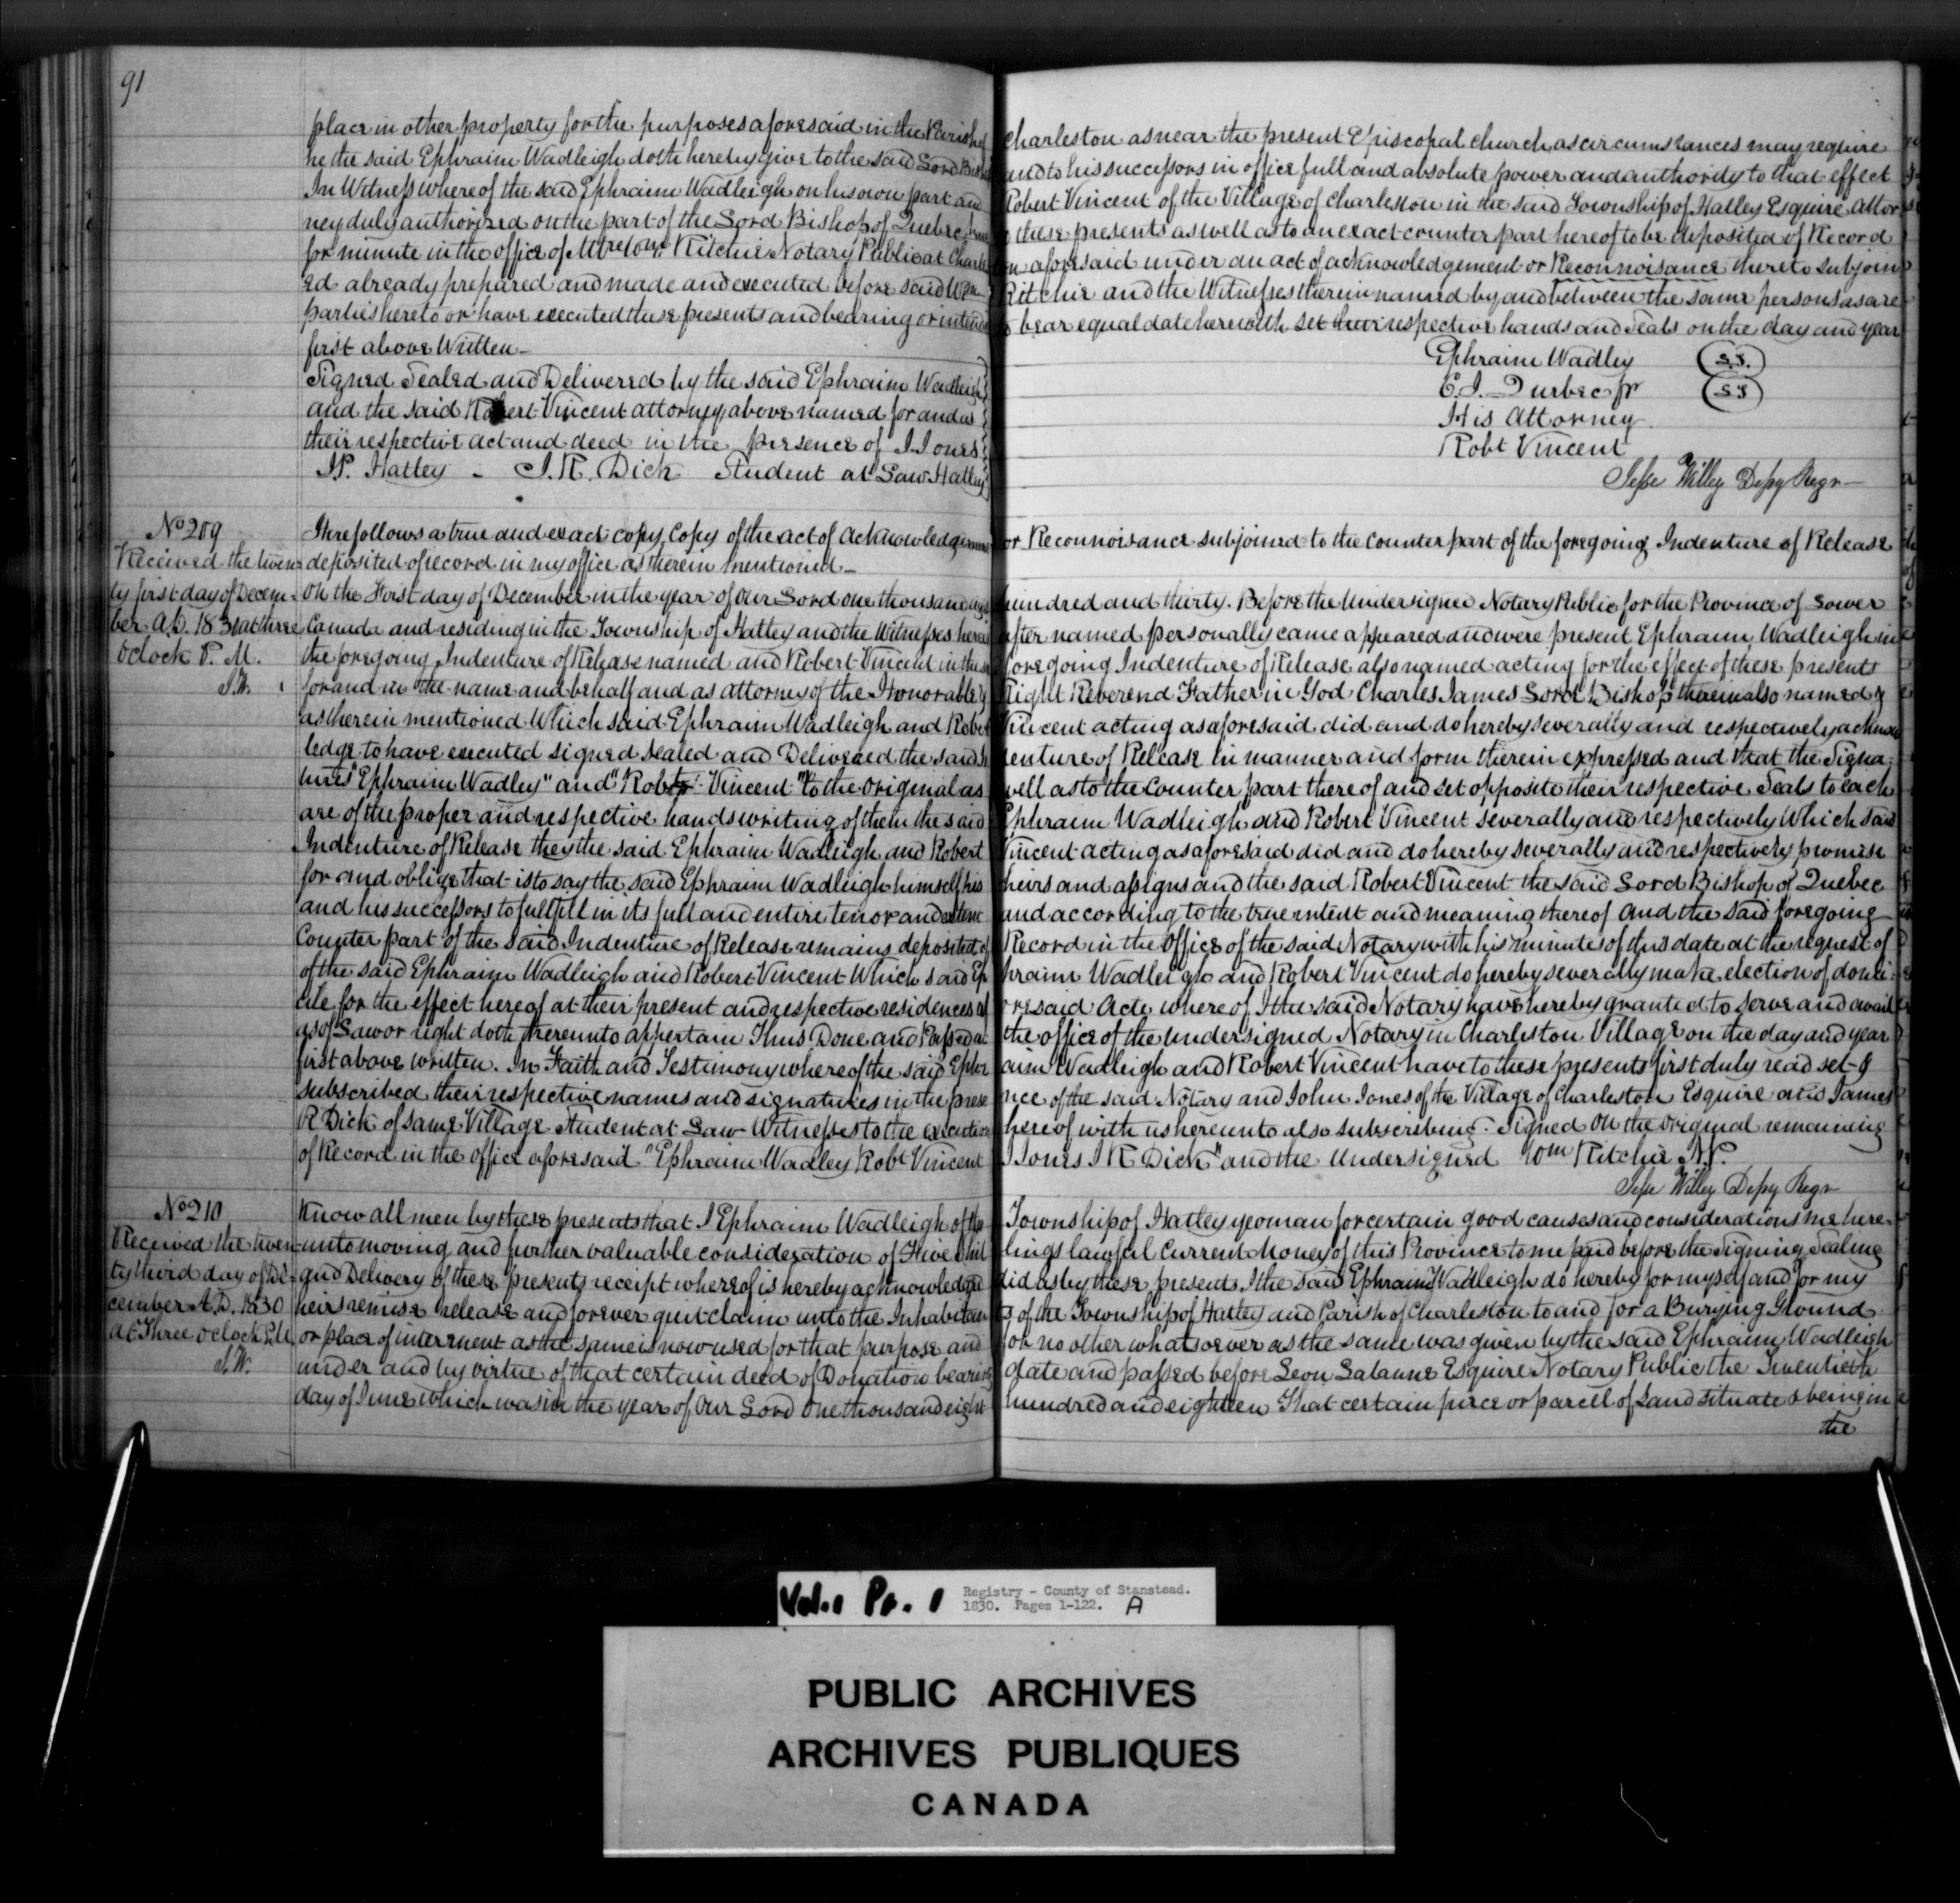 91
place in other property for the purposes aforesaid in the Parish of Charleston as near the present Episcopal church as circumstances may require
he the said Ephraim Wadleigh doth hereby give to the said Lord Bishop and to his successors in office full and absolute power and authority to that effect
In Witness whereof the said Ephraim Wadleigh on his own part and Robert Vincent of the Village of Charleston in the said Township of Hatley Esquire Attor
ney duly authorized on the part of the Lord Bishop of Quebec have to these presents as well as to an exact counter part hereof to be deposited of Record
for minute in the office of Mtre Wm Ritchie Notary Public at Charleston aforesaid under an act of acknowledgement or Reconnoisance thereto subjoin
ed already prepared and made and executed before said Wm Ritchie and the Witnesses therein named by and between the same persons as are
parties hereto or have executed these presents and bearing or intended to bear equal date herewith set their respective hands and Seals on the day and year
first above Written
Signed Sealed and Delivered by the said Ephraim Wadleigh
and the said Robert Vincent attorney above named for and as
their respective act and deed in the presence of J. Jones
J.P. Hatley - J. R. Dick Student at Law Hatley
Ephraim Wadley L.S.
C. J. Quebec pr L.S.
His Attorney
Robt Vincent
Jesse Willey Depy Regr
No 209
Received the twen
ty first day of Decem
ber A.D. 1830 at three
Oclock P. M.
J.W.
Here follows a true and exact copy Copy of the act of Acknowledgement or Reconnoisance subjoined to the counter part of the foregoing Indenture of Release
deposited of record in my office as therein mentioned
On the First day of December in the year of Our Lord one thousand eight hundred and thirty. Before the Undersigned Notary Public for the Province of Lower
Canada and residing in the Township of Hatley and the Witnesses herein after named personally came appeared and were present Ephraim Wadleigh in
the foregoing Indenture of Release named and Robert Vincent in the said foregoing Indenture of Release also named acting for the effect of these presents
for and in the name and behalf and as attorney of the Honorable & Right Reverend Father in God Charles James Lord Bishop therein also named &
as therein mentioned Which said Ephraim Wadleigh and Robert Vincent acting as aforesaid did and do hereby severally and respectively acknow
ledge to have executed signed sealed and Delivered the said Indenture of Release in manner and form therein expressed and that the Signa
tures "Ephraim Wadley" and "Robt Vincent" to the original as well as to the Counter part thereof and set opposite their respective Seals to each
are of the proper and respective hands writing of them the said Ephraim Wadleigh and Robert Vincent severally and respectively Which said
Indenture of Release they the said Ephraim Wadleigh and Robert Vincent acting as aforesaid did and do hereby severally and respectively promise
for and oblige that is to say the said Ephraim Wadleigh himself his heirs and assigns and the said Robert Vincent the said Lord Bishop of Quebec
and his successors to fullfill in its full and entire tenor and extent and according to the true intent and meaning thereof and the said foregoing
Counter part of the said Indenture of Release remains deposited of Record in the Office of the said Notary with his minutes of this date at the request of
of the said Ephraim Wadleigh and Robert Vincent Which said Ephraim Wadleigh and Robert Vincent do hereby severally make election of domi
cile for the effect hereof at their present and respective residences aforesaid Acte whereof I the said Notary have hereby granted to serve and avail
as of Law or right doth thereunto appertain Thus Done and Passed at the office of the undersigned Notary in Charleston Village on the day and year
first above written. In Faith and Testimony whereof the said Ephraim Wadleigh and Robert Vincent have to these presents first duly read set &
subscribed their respective names and signatures in the presence of the said Notary and John Jones of the Village of Charleston Esquire and James
R Dick of same Village Student at Law Witnesses to the execution hereof with us hereunto also subscribing. Signed On the Original remaining
of Record in the office aforesaid "Ephraim Wadley Robt Vincent J Jones J R Dick" and the Undersigned Wm Ritchie N.P.
Jesse Willey Depy Regr
No 210
Received the twen
ty third day of De
cember A.D. 1830
at Three oclock P.M.
J.W.
Know all men by these presents that I Ephraim Wadleigh of the Township of Hatley yeoman for certain good causes and considerations me here
unto moving and further valuable consideration of Five Shillings lawful Current Money of this Province to me paid before the Signing Sealing
and Delivery of these presents receipt whereof is hereby acknowledged did as by these presents I the said Ephraim Wadleigh do hereby for myself and for my
heirs remise release and forever quit claim unto the Inhabitants of the Township of Hatley and Parish of Charleston to and for a Burying Ground
or place of interment as the same is now used for that purpose and for no other whatsoever as the same was given by the said Ephraim Wadleigh
under and by virtue of that certain deed of Donation bearing date and passed before Leon Lalanne Esquire Notary Public the Twentieth
day of June which was in the year of Our Lord One thousand eight hundred and eighteen That certain piece or parcell of Land situate & being in
the
Vol. 1 Pt. 1
Registry - County of Stanstead.
1830. Pages 1-122. A
PUBLIC ARCHIVES
ARCHIVES PUBLIQUES
CANADA